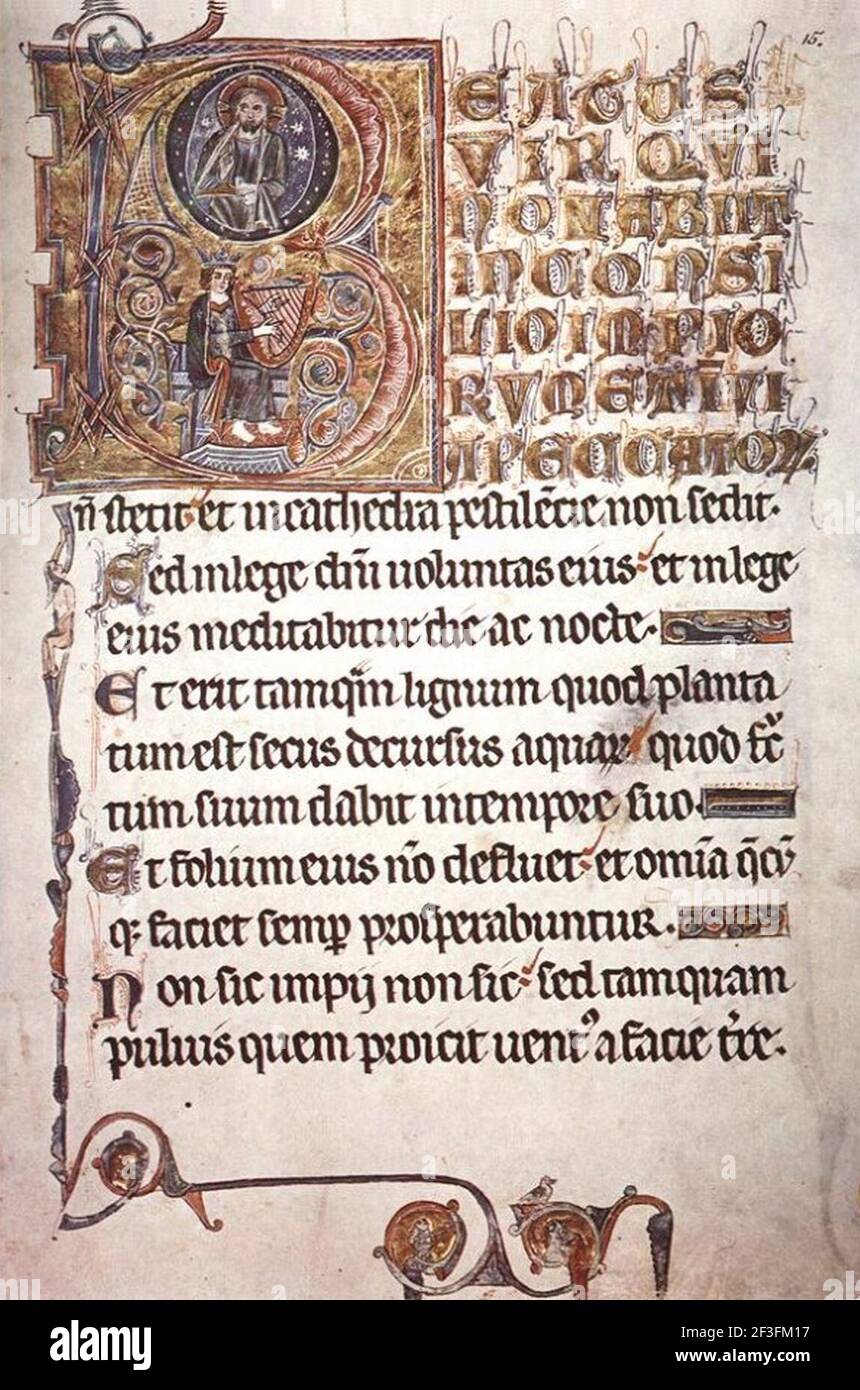 15.
BEATUS
VIR QVI
NON ABIIT
IN CONSI
LIO IMPIO
RVM ET I̅ VI
A PECCATOꝝ
n̄ stetit et in cathedra pestilēcie non sedit.
Sed in lege dn̄i uoluntas eius et in lege
eius meditabitur die ac nocte.
Et erit tamqm̄ lignum quod planta
tum est secus decursus aquaꝝ quod fc̄
tum suum dabit in tempore suo.
Et folium eius nō defluet et om̄ia q̄cū
q; faciet semꝑ prosperabuntur.
Non sic impij non sic sed tamquam
puluis quem proicit uentꝰ a facie tr̄re.
alamy
Image ID: 2F3FM17
www.alamy.com